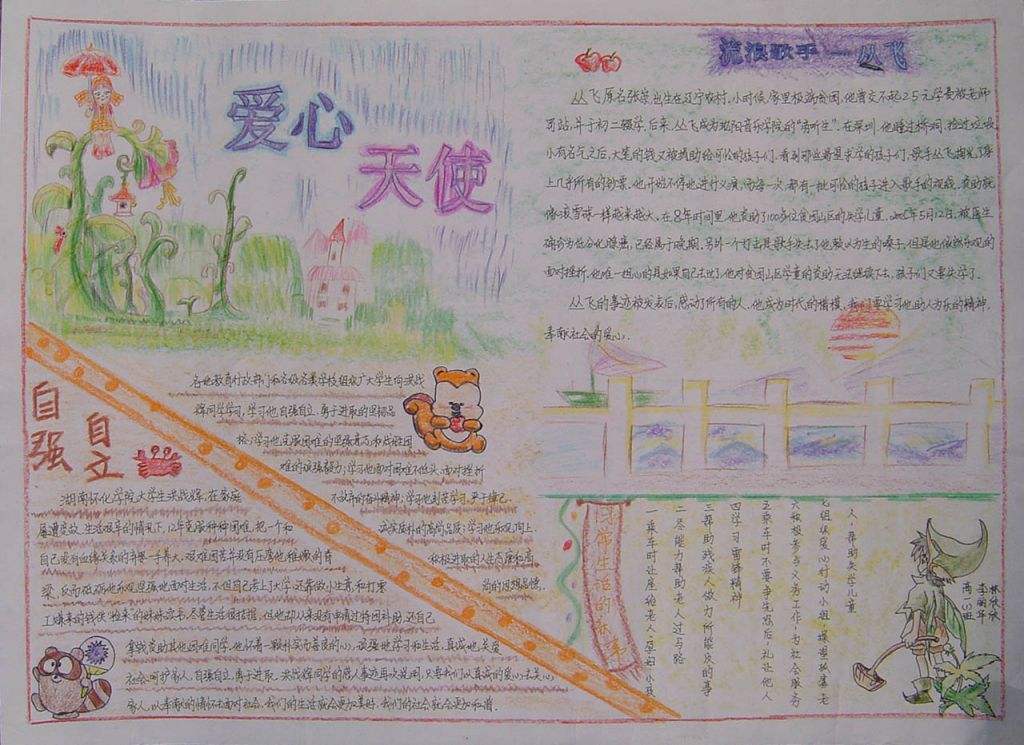 爱心
天使
流浪歌手—丛飞
丛飞原名张崇,出生在辽宁农村,小时候,家里极端贫困,他曾交不起25元学费被老师
罚站,并于初二辍学,后来,丛飞成为沈阳音乐学院的"旁听生".在深圳,他睡过桥洞,捡过垃圾
小有名气之后,大笔的钱又被捐助给可怜的孩子们.看到那些渴望求学的孩子们,歌手丛飞掏光了身
上几乎所有的钞票.他开始不停地进行义演,而每一次,都有一批可怜的孩子进入歌手的视线.资助就
像滚雪球一样越来越大.在8年时间里,他资助了100多位贫困山区的失学儿童.2005年5月12日,被医生
确诊为低分化腺癌,已经属于晚期.另外一个打击是歌手失去了他赖以为生的嗓子,但是他依然乐观的
面对挫折,他唯一担心的是如果自己去世了,他对贫困山区学童的资助无法继续下去,孩子们又要失学了.
丛飞的事迹被发表后,感动了所有的人.他成为时代的楷模,我们要学习他助人为乐的精神,
奉献社会的爱心.
自强
自立
各地教育行政部门和各级各类学校组织广大学生向洪战
辉同学学习,学习他自强自立、勇于进取的坚韧品
格;学习他克服困难的坚强意志和战胜困
难的顽强毅力;学习他面对困难不低头,面对挫折
不放弃的奋斗精神;学习他刻苦学习,严于律己,
关爱质朴的高尚品质;学习他乐观向上,
积极进取的人生态度和高
尚的思想品德.
湖南怀化学院大学生洪战辉,在家庭
屡遭变故、生活艰辛的情况下,12年克服种种困难,把一个和
自己没有血缘关系的弃婴一手养大.艰难困苦并没有压弯他稚嫩的脊
梁,反而激励他乐观坚强地面对生活.不但自己考上了大学,还靠做小生意和打零
工赚来的钱供"捡来"的妹妹读书,尽管生活很拮据,但他却从来没有申请过特困补助,还自己
拿钱资助其他困难同学.他怀着一颗朴实而善良的心,顽强地学习和生活,真诚地关爱
社会,呵护家人.自强自立,勇于进取,洪战辉同学的感人事迹再次说明,只要我们以真诚的爱心去关心
家人,以奉献的情怀去面对社会,我们的生活就会更加美好,我们的社会就会更加和谐.
一乘车时让座给老人孕妇小孩
二尽能力帮助老人过马路
三帮助残疾人做力所能及的事
四学习雷锋精神
五乘车时不要争先恐后礼让他人
六积极参与义务工作为社会服务
七组织爱心行动小组探望孤寡老
人,帮助失学儿童